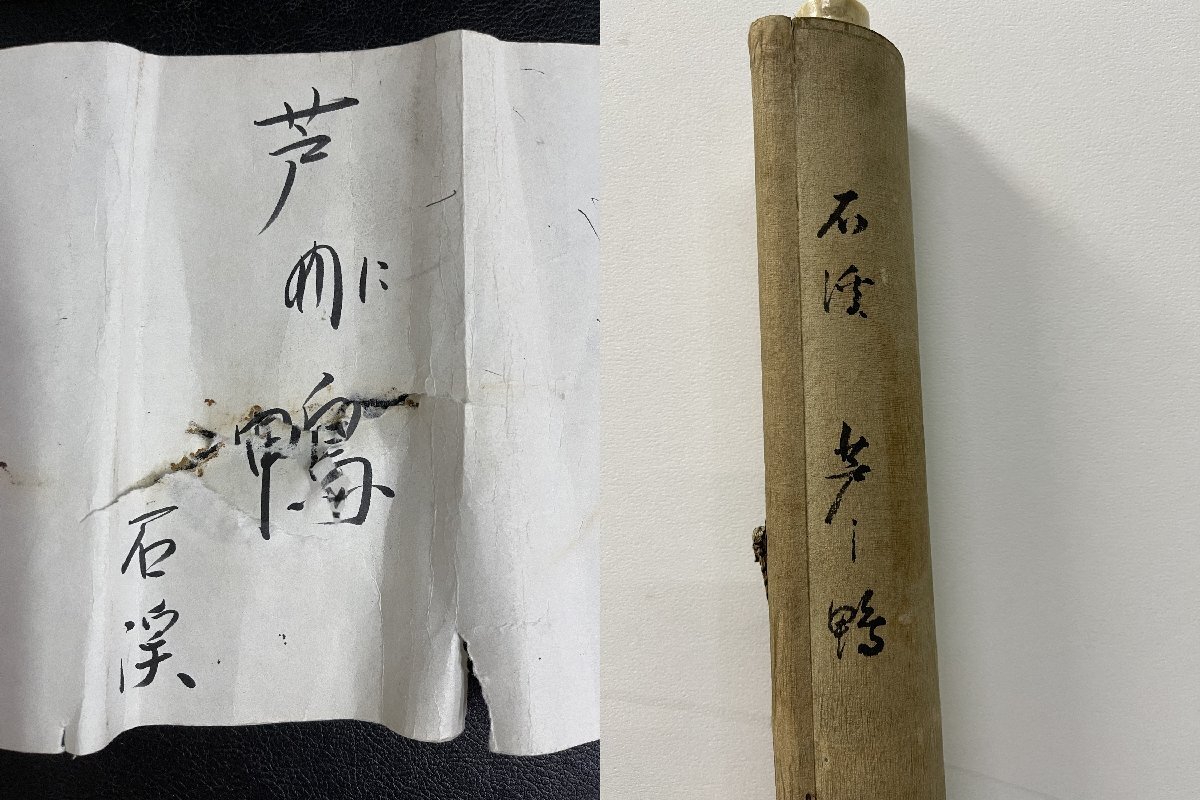 芦州に鴨
石渓
石渓 芦ニ鴨